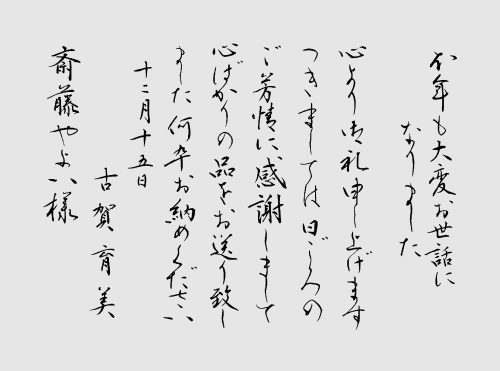 本年も大変お世話に
なりました
心より御礼申し上げます
つきましては日ごろの
ご芳情に感謝しまして
心ばかりの品をお送り致し
ました何卒お納めください
十二月十五日
古賀育美
斎藤やよい様